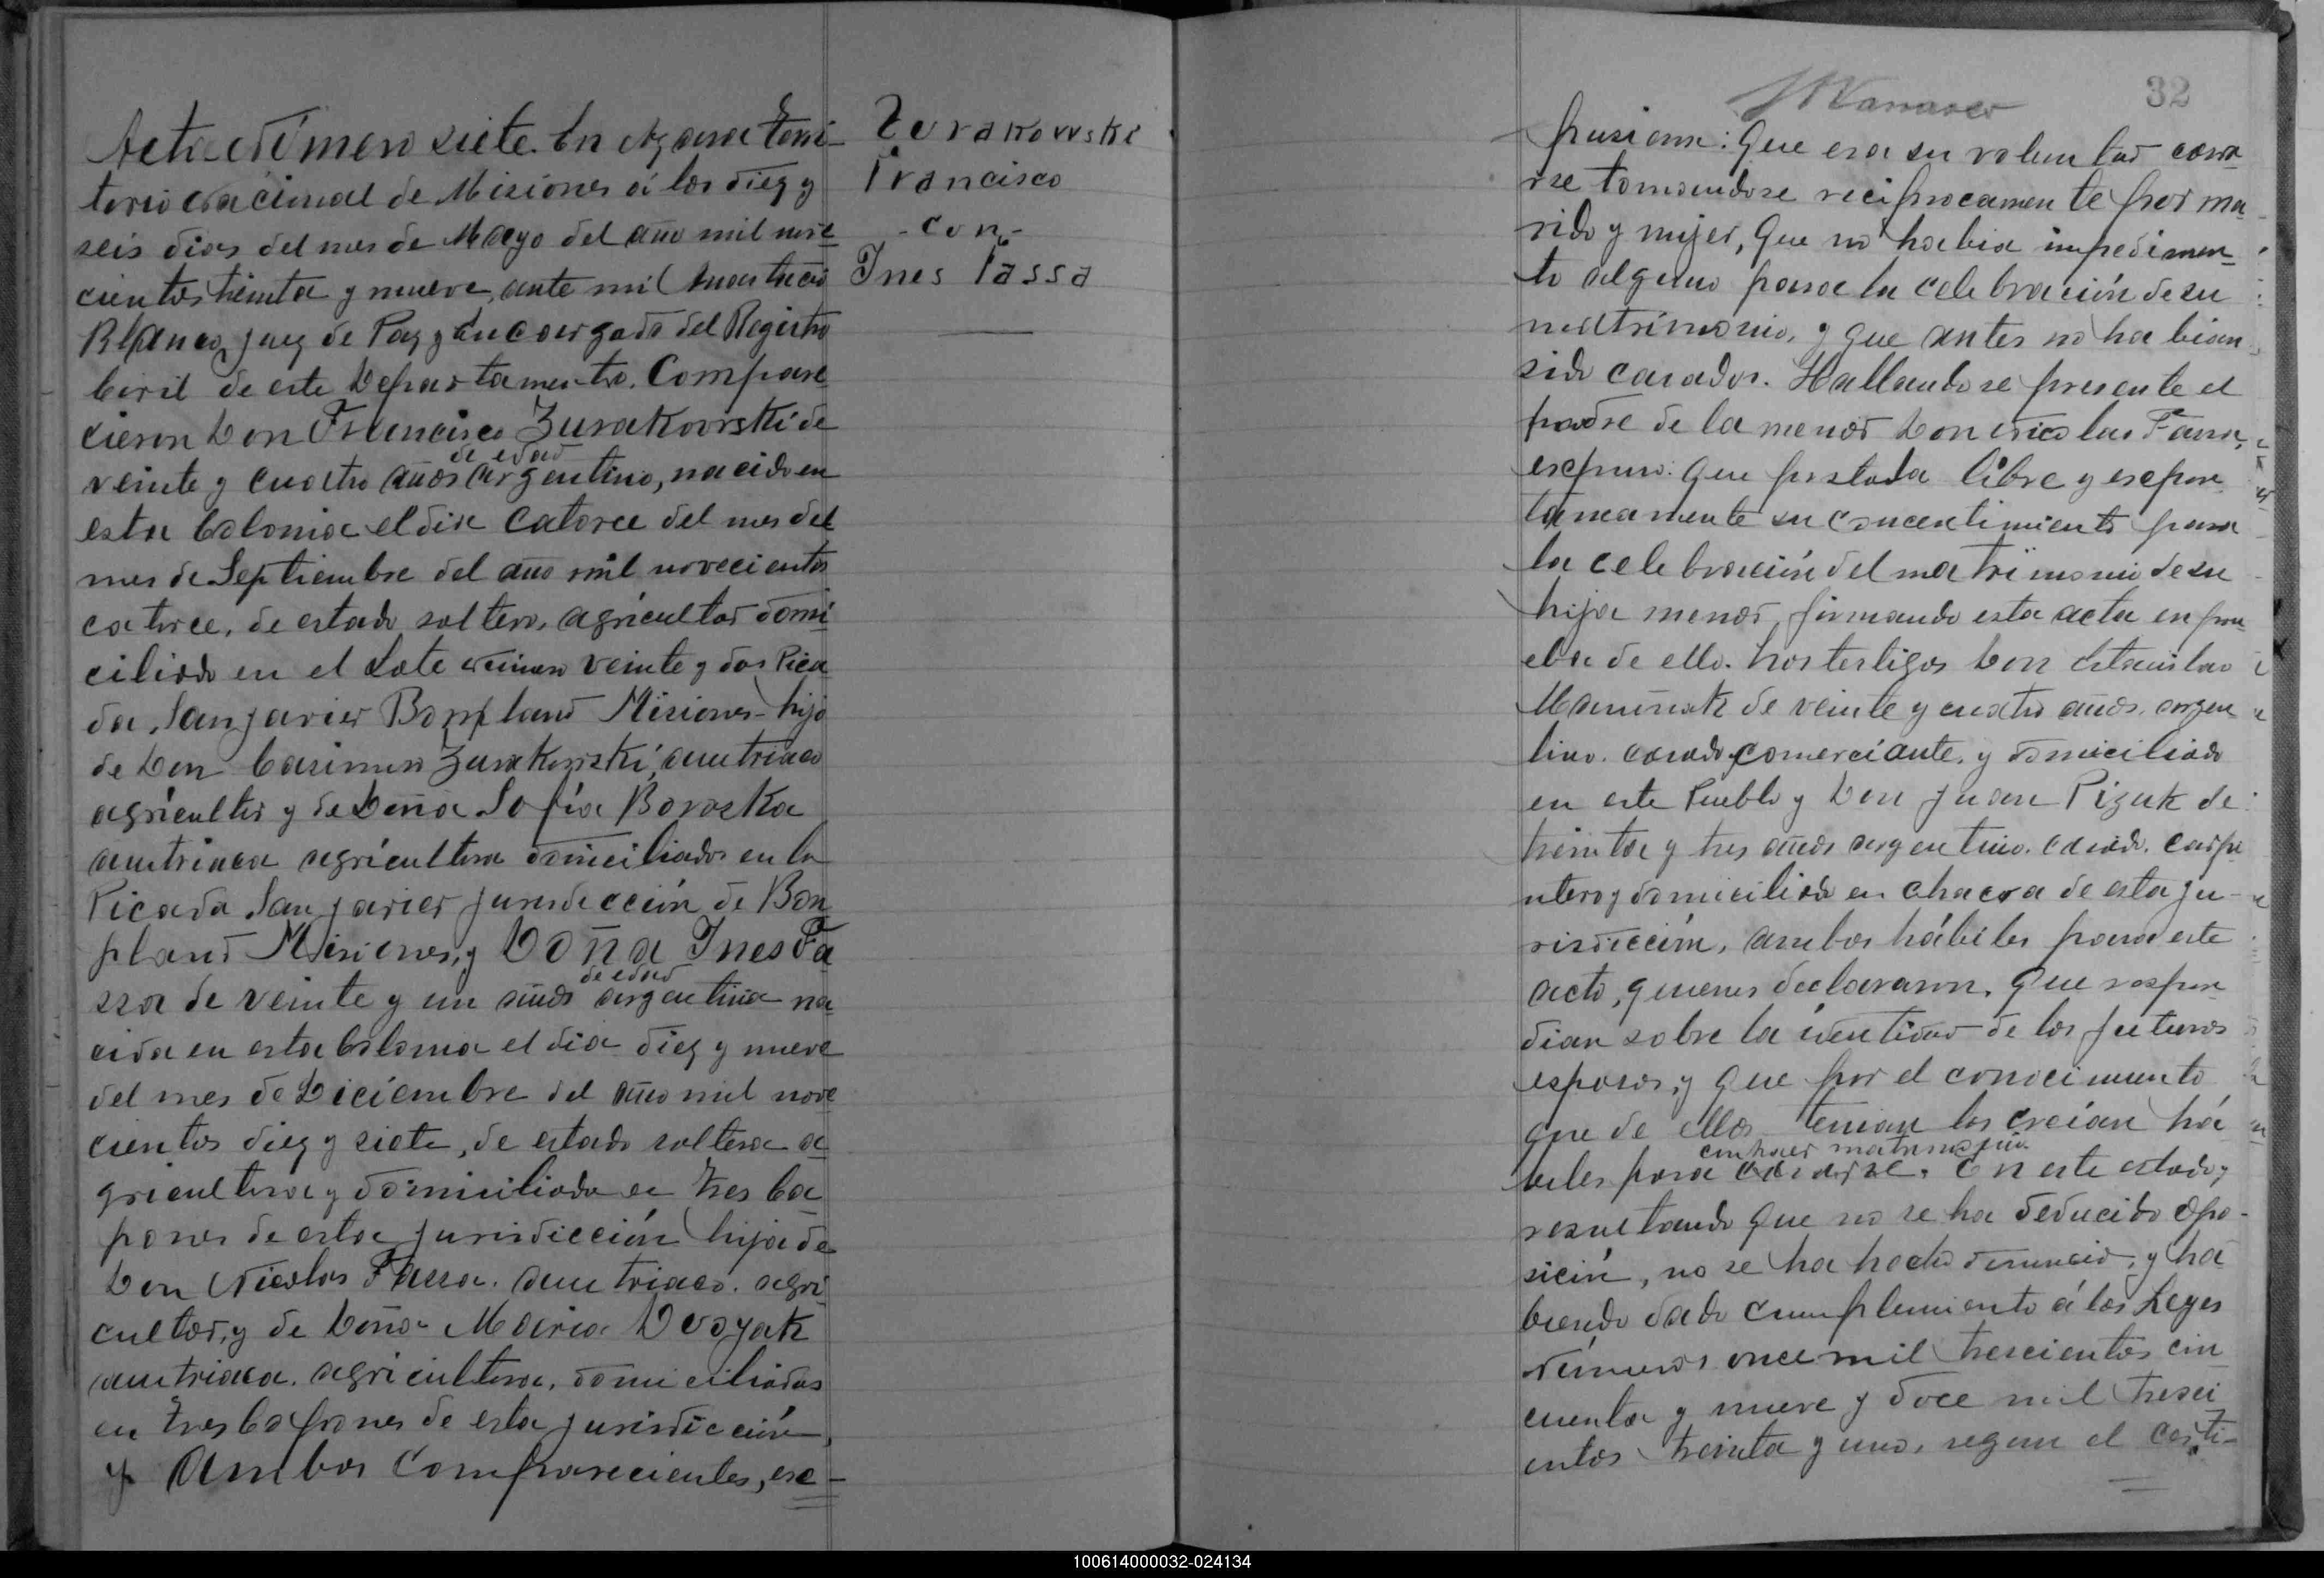 Acta Número siete. En Azara Terri-
torio Nacional de Misiones á los diez y
seis dias del mes de Mayo del año mil nove
cientos treinta y nueve, ante mi Anastacio
Blanco, Juez de Paz y Encargado del Registro
Civil de este Departamento. Compare
cieron Don Francisco Zurakovski de
de edad
veinte y cuatro años argentino, nacido en
esta Colonia el dia Catorce del mes del
mes de Septiembre del año mil novecientos
catorce, de estado soltero, agricultor domi
ciliado en el Lote número veinte y dos Pica
da, San Javier Bonpland Misiones - hijo
de Don Casimiro Zurakovski, austriaco
agricultor y de Doña Sofía Boroska
austriaca agricultora domiciliados en la
Picada San Javier jurisdicción de Bon
pland Misiones, y Doña Ines Fa
de edad
ssa de veinte y un años argentina na
cida en esta Colonia el dia diez y nueve
del mes de Diciembre del año mil nove
cientos diez y siete, de estado soltera a
gricultora y domiciliada en Tres Ca
pones de esta jurisdicción hija de
Don Nicolas Fassa. austriaco. agri
cultor, y de Doña Maria Dvoyak
austriaca. agricultora, domiciliados
en Tres Capones de esta jurisdicción,
y Ambos Comparecientes, exe-
Zurakowski
Francisco
- con -
Ines Fassa
32
pusieron: Que era su voluntad casa
rse tomandose reciprocamente por ma
rido y mujer, Que no habia impedimen
to alguno para la celebración de su
matrimonio, y que antes no habian
sido casados. Hallandose presente el
padre de la menor Don Nicolas Fassa,
expuso: Que prestaba libre y espon
taneamente su concentimiento para
la celebración del matrimonio de su
hija menor, firmando esta acta en pru
eba de ello. Los testigos Don Estanislao
de veinte y cuatro años. argen
tino. casado, comerciante, y domiciliado
en este Pueblo y Don Juan Pizuk de
treinta y tres años argentino. casado. carpi
ntero y domiciliado en chacra de esta ju-
risdicción, ambos hábiles para este
acto, quienes declararon, Que respon
dian sobre la identidad de los futuros
esposos, y Que por el conocimiento
que de ellos tenian los creían há
contraer matrimonio
biles para casarse. En este estado,
resultando Que no se ha deducido Opo-
sición, no se ha hecho denuncia, y ha
biendo dado cumplimiento á las Leyes
Números once mil trescientos cin
cuenta y nueve y doce mil tresci
entos treinta y uno, segun el certi-
100614000032-024134